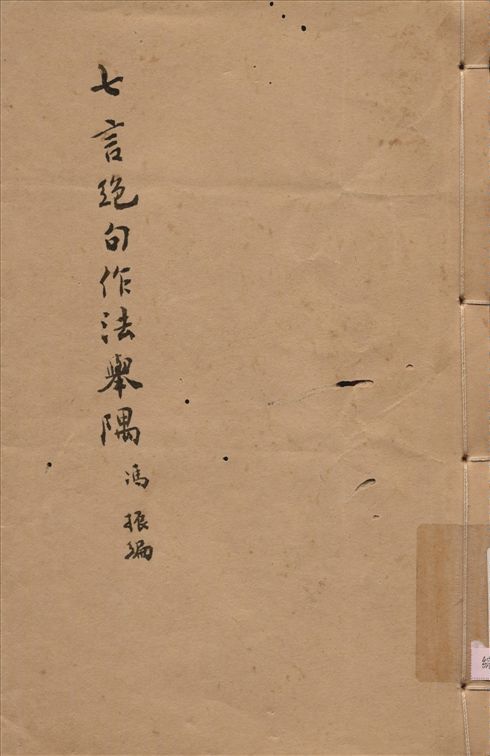 七言絕句作法舉隅
馮振編